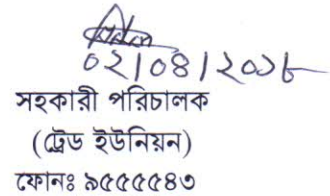 ০২/০৪/২০১৮
সহকারী পরিচালক
(ট্রেড ইউনিয়ন)
ফোনঃ ৯৫৫৫৫৪৩